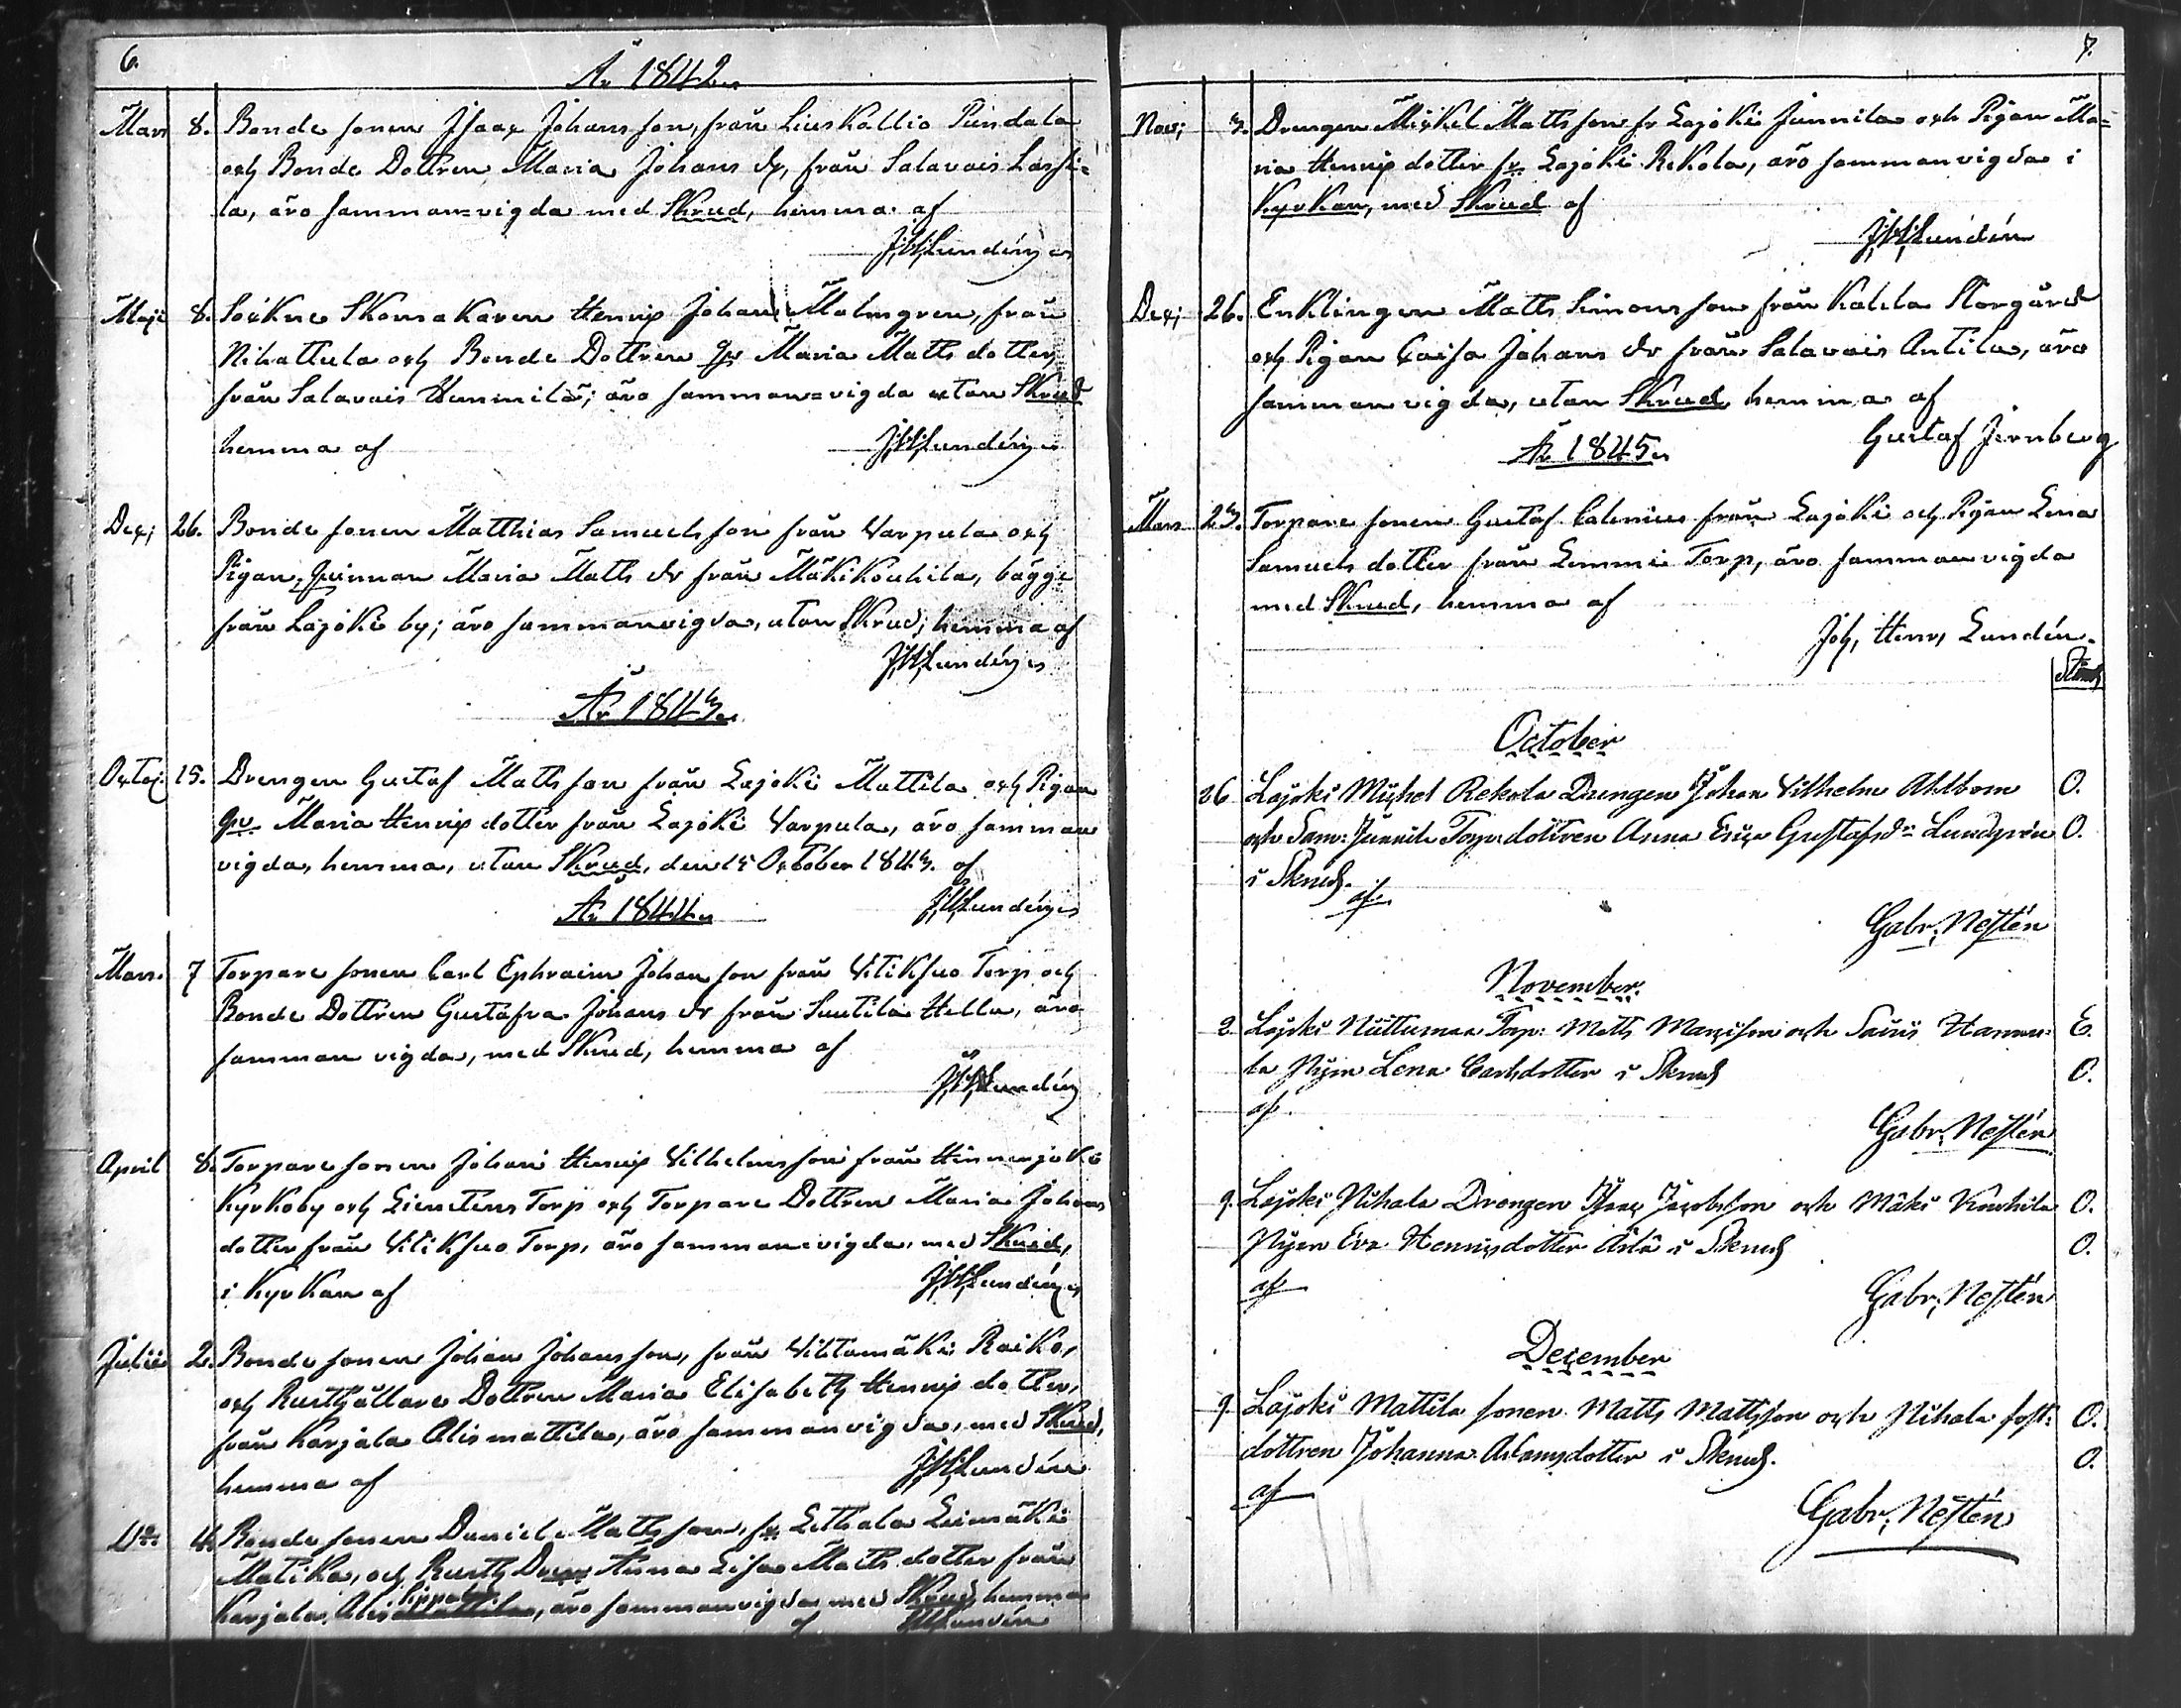 6.
År 1842.
Mars 8. Bonde sonen Isaac Johansson, från Liuskallio Pundala
och Bonde Dottren Maria Johans dr, från Salavais Lassi=
la, äro samman=vigda med Skrud, hemma af
J.H.Lundén
Maji 8. Sockne Skomakaren Henric Johan Malmgren, från
Nihattula och Bonde Dottren Qv. Maria Matts dotter,
från Salavais Hummila; äro samman=vigda utan Skrud
hemma af J.H.Lundén
Dec; 26. Bonde sonen Matthias Samuelsson från Varpula och
Pigan, Qvinnan Maria Matts dr från Mäkikouhila, bägge
från Lajoki by; äro sammanvigda, utan Skrud; hemma af
J.H.Lundén
År 1843.
Octo; 15. Drengen Gustaf Mattsson från Lajoki Mattila och Pigan
Qv. Maria Henric dotter från Lajoki Varpula, äro samman
vigda, hemma, utan Skrud, den 15 October 1843. af
J.H.Lundén
År 1844.
Mars. 7 Torpare sonen Carl Ephraim Johansson från Vitiksuo Torp och
Bonde Dottren Gustafva Johans dr från Suutila Hella, äro
samman vigda, med Skrud, hemma af
J.H.Lundén
April 8. Torpare sonen Johan Henric Vilhelmsson från Hinnerjoki
Kyrkoby och Torp och Torpare Dottren Maria Johans
dotter från Vitiksuo Torp, äro sammanvigda, med Skrud,
i Kyrkan af J.H.Lundén
Julii 2. Bonde sonen Johan Johansson, från Viktamäki Raiko,
och Rusthållare Dottren Maria Elisabeth Henric dotter,
från Karjala Alismattila, äro sammanvigda, med Skrud,
hemma af J.H.Lundén
Do 4. Bonde sonen Daniel Mattsson, fr. Lethala Leimäki
Matika, och Rusth Dr Anna Lisa Matts dotter från
Karjala, äro sammanvigda med Skrud, hemma
af J.H.Lundén
7.
Nov; 3. Drengen Mickel Mattsson fr Lajoki Junnila och Pigan Ma=
ria Henric dotter fr. Lajoki Rekola, äro sammanvigda i
Kyrkan, med Skrud af
J.H.Lundén
Dec; 26. Enklingen Matts Simonsson från Kalela Storgård
och Pigan Caisa Johans dr från Salavais Antila, äro
samman vigda, utan Skrud hemma af
Gustaf Jernberg
År 1845.
Mars 23. Torpare sonen Gustaf Calenius från Lajoki och Pigan Lena
Samuels dotter från Lemmi Torp, äro sammanvigda
med Skrud, hemma af
Joh, Henr, Lundén.
Stånd
October
26 Lajoki Michel Rekola Drengen Johan Vilhelm Ahlbom O.
och Sam: Junnila Torp. dottren Anna Erica Gustafsdr Lundgrén O.
i Skrud.
af
Gabr. Nestén
November.
2. Lajoki Nuttumaa Torp: Matts Mattsson och Sauris Hannu: E.
la Pigan Lena Carlsdotter i Skrud O.
af
Gabr. Nestén
9. Lajoki Nihala Drengen Isaac Jacobsson och Mäki Kouhila O.
Pigan Eva Henricsdotter i Skrud O.
af
Gabr. Nestén
December
9. Lajoki Mattila sonen Matts Mattsson och Nihala fost: O.
dottren Johanna Adamsdotter i Skrud. O.
af
Gabr. Nestén